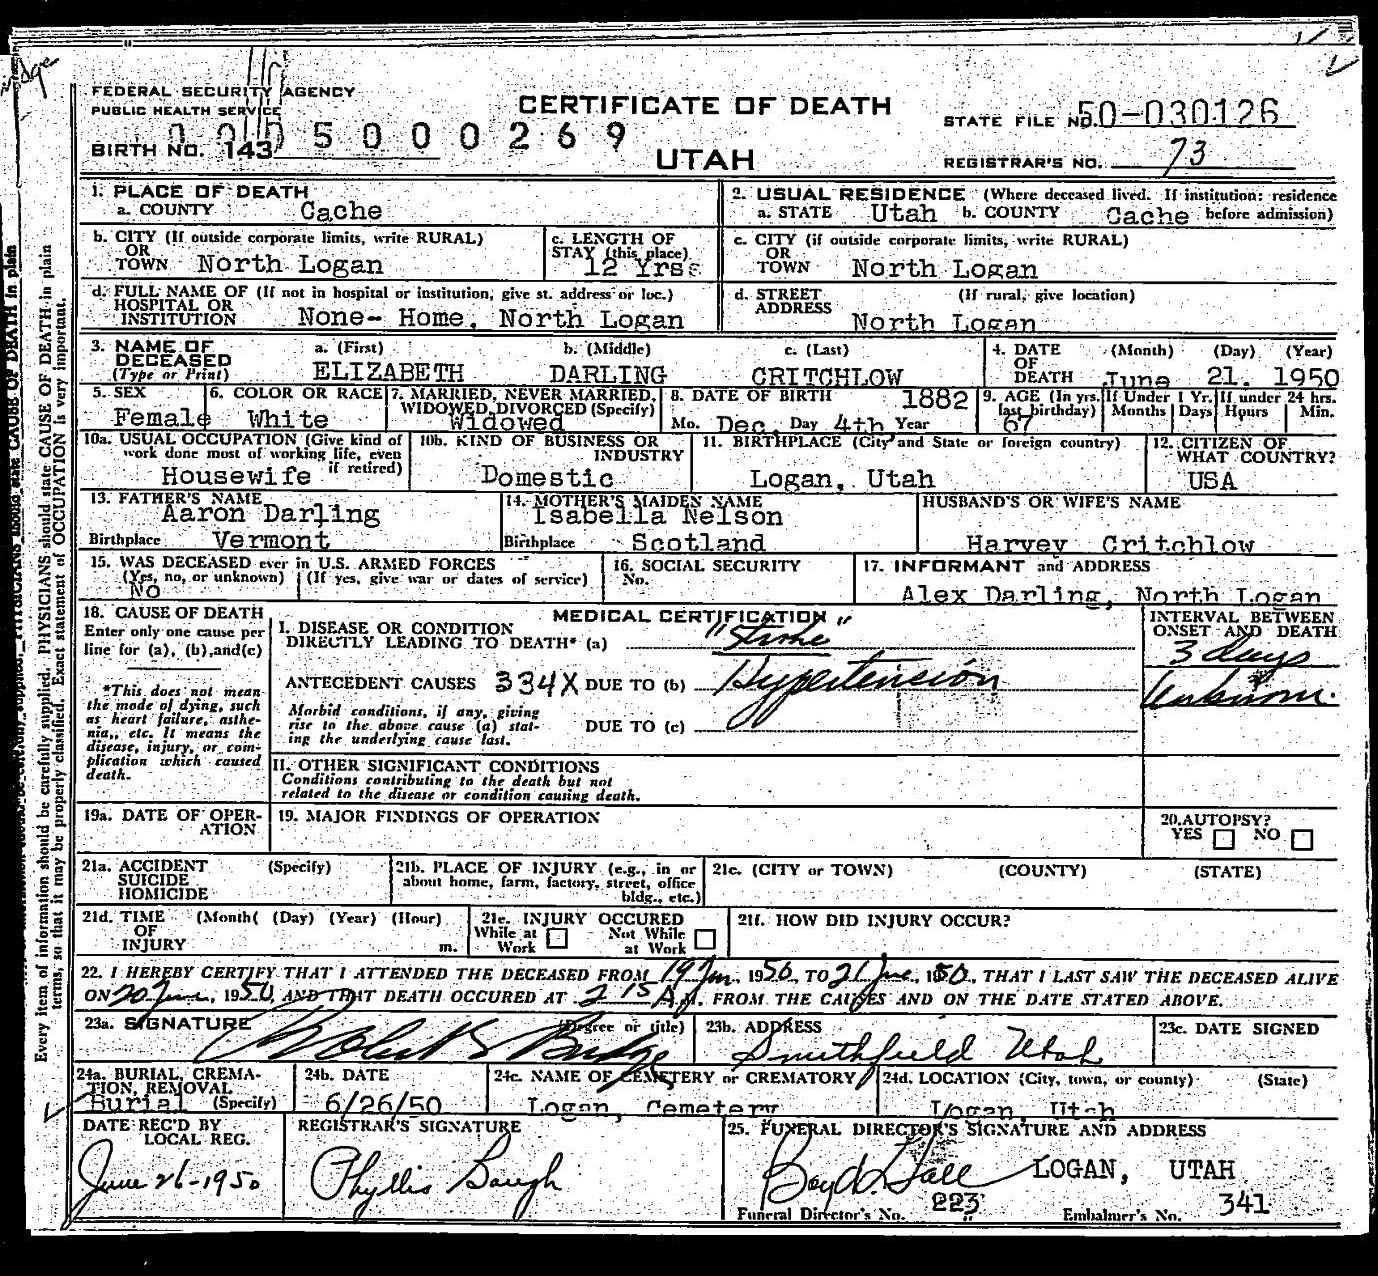 FEDERAL SECURITY AGENCY
PUBLIC HEALTH SERVICE
CERTIFICATE OF DEATH
STATE FILE NO. 50-030126
5 0 0 0 2 6 9
BIRTH NO. 143
UTAH
REGISTRAR'S NO. 73
1. PLACE OF DEATH
a. COUNTY Cache
2. USUAL RESIDENCE (Where deceased lived. If institution: residence before admission)
a. STATE Utah b. COUNTY Cache
b. CITY (If outside corporate limits, write RURAL)
OR
TOWN North Logan
c. LENGTH OF
STAY (this place)
12 Yrs
c. CITY (if outside corporate limits, write RURAL)
OR
TOWN North Logan
d. FULL NAME OF (If not in hospital or institution, give st. address or loc.)
HOSPITAL OR
INSTITUTION None- Home, North Logan
d. STREET (If rural, give location)
ADDRESS
North Logan
3. NAME OF DECEASED (Type or Print)
a. (First) b. (Middle) c. (Last)
ELIZABETH DARLING CRITCHLOW
4. DATE OF DEATH (Month) (Day) (Year)
June 21, 1950
5. SEX
Female
6. COLOR OR RACE
White
7. MARRIED, NEVER MARRIED,
WIDOWED, DIVORCED (Specify)
Widowed
8. DATE OF BIRTH 1882
Mo. Dec. Day 4th Year
9. AGE (In yrs. last birthday) If Under 1 Yr. If under 24 hrs.
67 Months Days Hours Min.
10a. USUAL OCCUPATION (Give kind of
work done most of working life, even
if retired)
Housewife
10b. KIND OF BUSINESS OR
INDUSTRY
Domestic
11. BIRTHPLACE (City and State or foreign country)
Logan, Utah
12. CITIZEN OF
WHAT COUNTRY?
USA
13. FATHER'S NAME
Aaron Darling
Birthplace Vermont
14. MOTHER'S MAIDEN NAME
Isabella Nelson
Birthplace Scotland
HUSBAND'S OR WIFE'S NAME
Harvey Critchlow
15. WAS DECEASED ever in U.S. ARMED FORCES
(Yes, no, or unknown) (If yes, give war or dates of service)
No
16. SOCIAL SECURITY
No.
17. INFORMANT and ADDRESS
Alex Darling, North Logan
18. CAUSE OF DEATH
Enter only one cause per
line for (a), (b), and (c)
*This does not mean
the mode of dying, such
as heart failure, asthe-
nia, etc. It means the
disease, injury, or com-
plication which caused
death.
MEDICAL CERTIFICATION
I. DISEASE OR CONDITION
DIRECTLY LEADING TO DEATH* (a) "Stroke"
ANTECEDENT CAUSES 334X DUE TO (b) Hypertension
Morbid conditions, if any, giving
rise to the above cause (a) stat-
ing the underlying cause last.
DUE TO (c)
INTERVAL BETWEEN
ONSET AND DEATH
3 days
Unknown.
II. OTHER SIGNIFICANT CONDITIONS
Conditions contributing to the death but not
related to the disease or condition causing death.
19a. DATE OF OPER-
ATION
19. MAJOR FINDINGS OF OPERATION
20. AUTOPSY?
YES NO
21a. ACCIDENT (Specify)
SUICIDE
HOMICIDE
21b. PLACE OF INJURY (e.g., in or
about home, farm, factory, street, office
bldg., etc.)
21c. (CITY or TOWN) (COUNTY) (STATE)
21d. TIME (Month( (Day) (Year) (Hour)
OF
INJURY m.
21e. INJURY OCCURED
While at Work Not While at Work
21f. HOW DID INJURY OCCUR?
22. I HEREBY CERTIFY THAT I ATTENDED THE DECEASED FROM 19 Jun, 1950, TO 21 June, 1950, THAT I LAST SAW THE DECEASED ALIVE
ON 20 June, 1950, AND THAT DEATH OCCURED AT 2 15 A.M. FROM THE CAUSES AND ON THE DATE STATED ABOVE.
23a. SIGNATURE (Degree or title)
Robert S Budge
23b. ADDRESS
Smithfield Utah
23c. DATE SIGNED
24a. BURIAL, CREMA-
TION, REMOVAL
Burial (Specify)
24b. DATE
6/26/50
24c. NAME OF CEMETERY or CREMATORY
Logan, Cemetery
24d. LOCATION (City, town, or county) (State)
Logan, Utah
DATE REC'D BY
LOCAL REG.
June 26-1950
REGISTRAR'S SIGNATURE
Phyllis Baugh
25. FUNERAL DIRECTOR'S SIGNATURE AND ADDRESS
Boyd Hall LOGAN, UTAH
Funeral Director's No. 223 Embalmer's No. 341
Every item of information should be carefully supplied. PHYSICIANS should state CAUSE OF DEATH in plain
terms, so that it may be properly classified. Exact statement of OCCUPATION is very important.